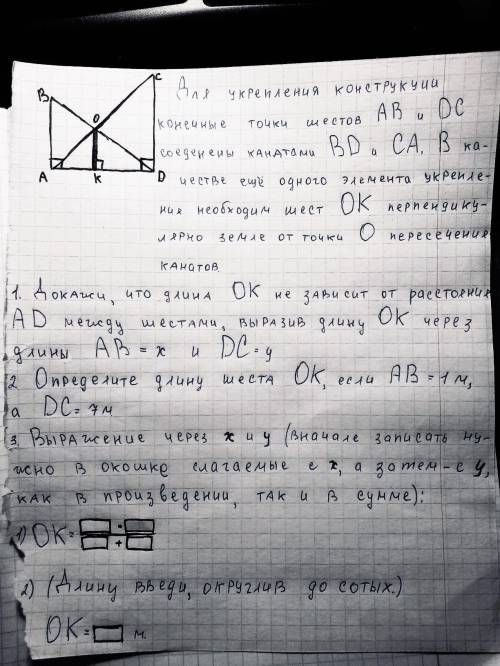 C
B
O
A
K
D
Для укрепления конструкции
конечные точки шестов AB и DC
соеденены канатами BD и CA. В ка-
честве ещё одного элемента укрепле-
ния необходим шест OK перпендику-
лярно земле от точки O пересечения
канатов.
1. Докажи, что длина OK не зависит от расстояния
AD между шестами, выразив длину OK через
длины AB = x и DC = y
2. Определите длину шеста OK, если AB = 1 м,
а DC = 7 м
3. Выражение через x и y (вначале записать ну-
жно в окошке слагаемые с x, а затем - с y,
как в произведении, так и в сумме):
1) OK = □ · □
□ + □
2) (Длину введи, округлив до сотых.)
OK = □ м.